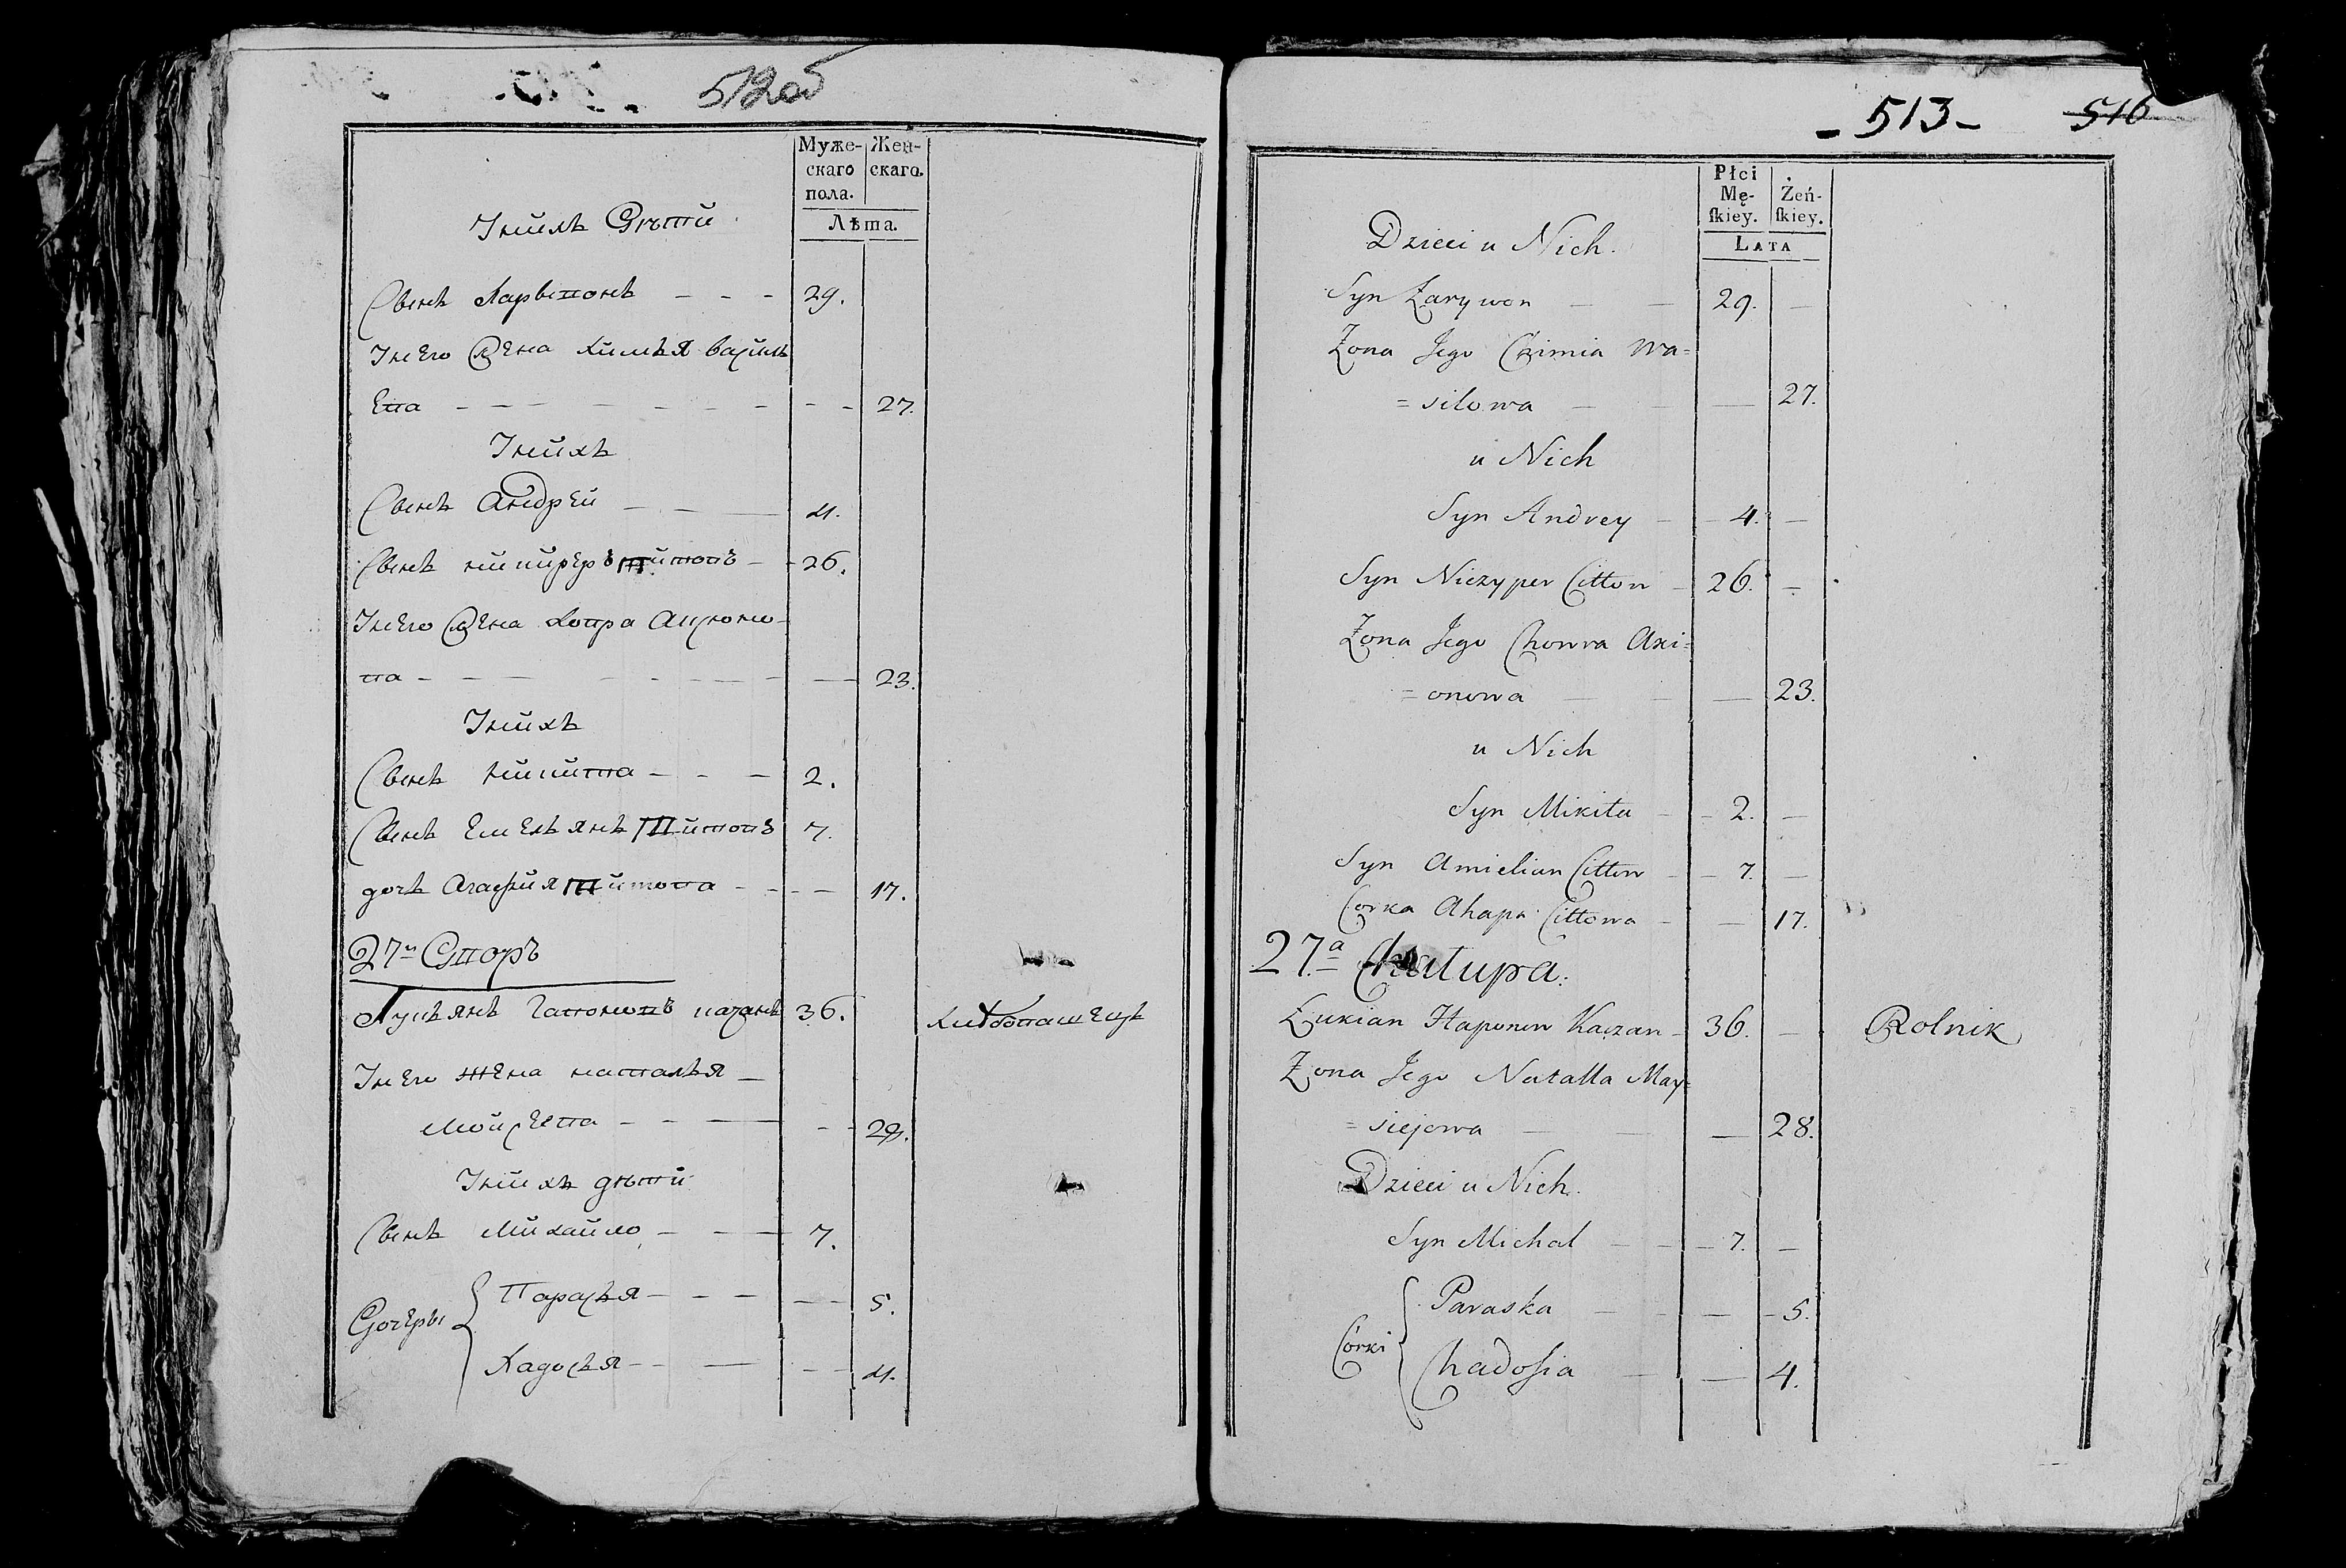 512об
Муже-
скаго
пола.
Жен-
скаго.
Лѣта.
Унихъ Дѣти
Сынъ Ларывонъ - - - 29.
Унего Жена Химья василь
ева - - - 27.
Унихъ
Сынъ Андрей - - 4.
Сынъ ничиперъ Титовъ - 26.
Унего Жена Ховра Аксюно-
ва - - - 23.
Унихъ
Сынъ Никита - - - 2.
Сынъ Емельянъ Титовъ 7.
дочь Агафия Титова - - - 17.
27й Дворъ
Лукьянъ Гапоновъ казанъ 36. Хлѣбопашецъ
Унего жена наталья -
Мойсеева - - - 28.
Унихъ дѣти
Сынъ Михайло - - - 7.
Дочеры
Парасья - - - 5.
Хадосья - - - 4.
- 513 -
516
Płci
Mę-
ſkiey.
Żeń-
ſkiey.
LATA
Dzieci u Nich.
Syn Łarywon — — 29. —
Żona Jego Chimia Wa=
= silowa — — — 27.
u Nich
Syn Andrey — 4. —
Syn Niczyper Cittow — 26. —
Żona Jego Chowra Axi=
= onowa — — — 23.
u Nich
Syn Mikita — 2. —
Syn Amielian Cittow — 7. —
Corka Ahapa Cittowa — — 17.
27.a Chałupa.
Łukian Haponow Kazan — 36. — Rolnik
Żona Jego Natalla May=
= siejowa — — — 28.
Dzieci u Nich.
Syn Michal — — 7. —
Córki
Paraska — — — 5.
Chadosia — — 4.